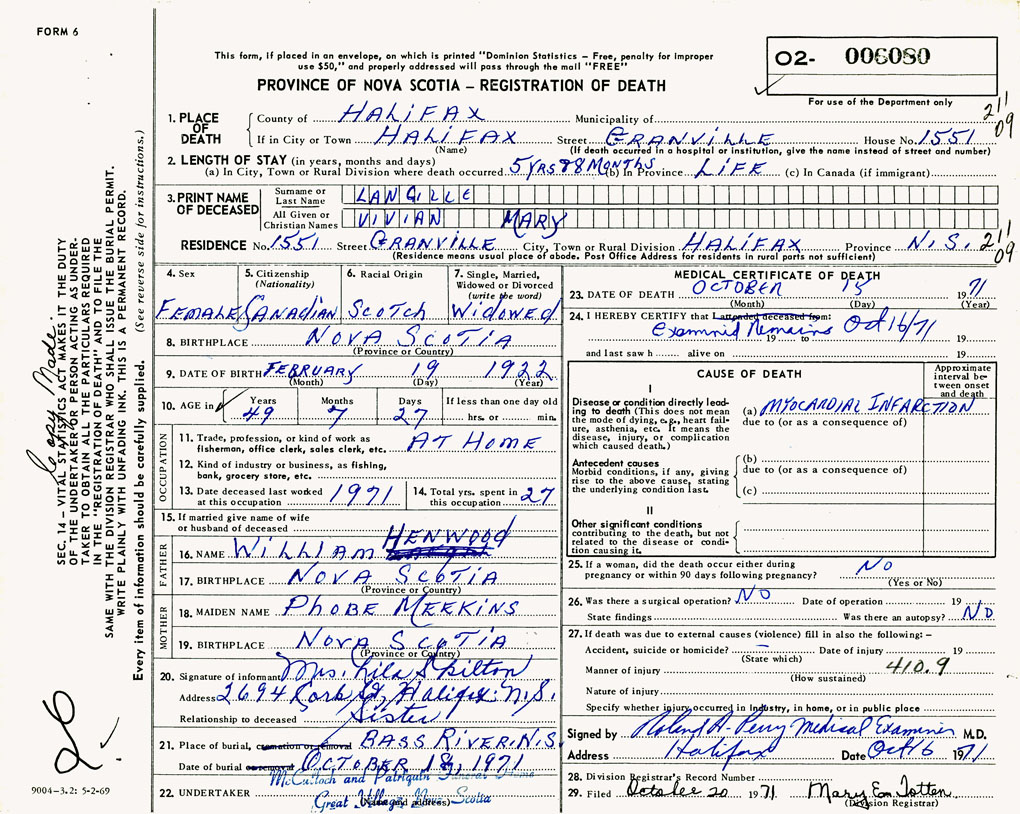 FORM 6
This form, if placed in an envelope, on which is printed "Dominion Statistics – Free, penalty for improper
use $50," and properly addressed will pass through the mail "FREE"
PROVINCE OF NOVA SCOTIA – REGISTRATION OF DEATH
02- 006080
For use of the Department only
211
09
1. PLACE OF DEATH
County of HALIFAX Municipality of
If in City or Town HALIFAX Street GRANVILLE House No. 1551
(Name) (If death occurred in a hospital or institution, give the name instead of street and number)
2. LENGTH OF STAY (in years, months and days)
(a) In City, Town or Rural Division where death occurred 5 YRS 8 MONTHS (b) In Province LIFE (c) In Canada (if immigrant)
3. PRINT NAME OF DECEASED
Surname or Last Name LANGILLE
All Given or Christian Names VIVIAN MARY
RESIDENCE No. 1551 Street GRANVILLE City, Town or Rural Division HALIFAX Province N.S. 211
09
(Residence means usual place of abode. Post Office Address for residents in rural parts not sufficient)
4. Sex
FEMALE
5. Citizenship
(Nationality)
CANADIAN
6. Racial Origin
SCOTCH
7. Single, Married,
Widowed or Divorced
(write the word)
WIDOWED
8. BIRTHPLACE NOVA SCOTIA
(Province or Country)
9. DATE OF BIRTH FEBRUARY 19 1922
(Month) (Day) (Year)
10. AGE in
Years Months Days If less than one day old
49 7 27 hrs. or min.
OCCUPATION
11. Trade, profession, or kind of work as
fisherman, office clerk, sales clerk, etc. AT HOME
12. Kind of industry or business, as fishing,
bank, grocery store, etc.
13. Date deceased last worked
at this occupation 1971
14. Total yrs. spent in
this occupation 27
15. If married give name of wife
or husband of deceased
FATHER
16. NAME WILLIAM HENWOOD
17. BIRTHPLACE NOVA SCOTIA
(Province or Country)
MOTHER
18. MAIDEN NAME PHOBE MEEKINS
19. BIRTHPLACE NOVA SCOTIA
(Province or Country)
20. Signature of informant Mrs. Lila Skilton
Address 2694 St, Halifax N.S.
Relationship to deceased Sister
21. Place of burial, cremation or removal BASS RIVER, N.S.
Date of burial or removal OCTOBER 18, 1971
McCulloch and Patriquin Funeral Home
22. UNDERTAKER Great Village, Nova Scotia
(Name and address)
MEDICAL CERTIFICATE OF DEATH
23. DATE OF DEATH OCTOBER 15 1971
(Month) (Day) (Year)
24. I HEREBY CERTIFY that I attended deceased from:
Examined Remains Oct 16/71
19 to 19
and last saw h alive on 19
CAUSE OF DEATH
Approximate
interval be-
tween onset
and death
I
Disease or condition directly lead-
ing to death (This does not mean
the mode of dying, e.g., heart fail-
ure, asthenia, etc. It means the
disease, injury, or complication
which caused death.)
(a) MYOCARDIAL INFARCTION
due to (or as a consequence of)
Antecedent causes
Morbid conditions, if any, giving
rise to the above cause, stating
the underlying condition last.
(b)
due to (or as a consequence of)
(c)
II
Other significant conditions
contributing to the death, but not
related to the disease or condi-
tion causing it.
25. If a woman, did the death occur either during
pregnancy or within 90 days following pregnancy? NO
(Yes or No)
26. Was there a surgical operation? NO Date of operation 19
State findings Was there an autopsy? NO
27. If death was due to external causes (violence) fill in also the following: –
Accident, suicide or homicide? – Date of injury 19
(State which)
Manner of injury 410.9
(How sustained)
Nature of injury
Specify whether injury occurred in Industry, in home, or in public place
Signed by Roland A. Perry Medical Examiner M.D.
Address Halifax Date Oct 16 1971
28. Division Registrar's Record Number
29. Filed October 20 1971 Mary E. Totten
(Division Registrar)
Copy Made.
SEC. 14 – VITAL STATISTICS ACT MAKES IT THE DUTY
OF THE UNDERTAKER OR PERSON ACTING AS UNDER-
TAKER TO OBTAIN ALL THE PARTICULARS REQUIRED
IN THE "REGISTRATION OF DEATH" AND TO FILE THE
SAME WITH THE DIVISION REGISTRAR WHO SHALL ISSUE THE BURIAL PERMIT.
WRITE PLAINLY WITH UNFADING INK. THIS IS A PERMANENT RECORD.
Every item of information should be carefully supplied. (See reverse side for instructions.)
26
9004-3.2: 5-2-69